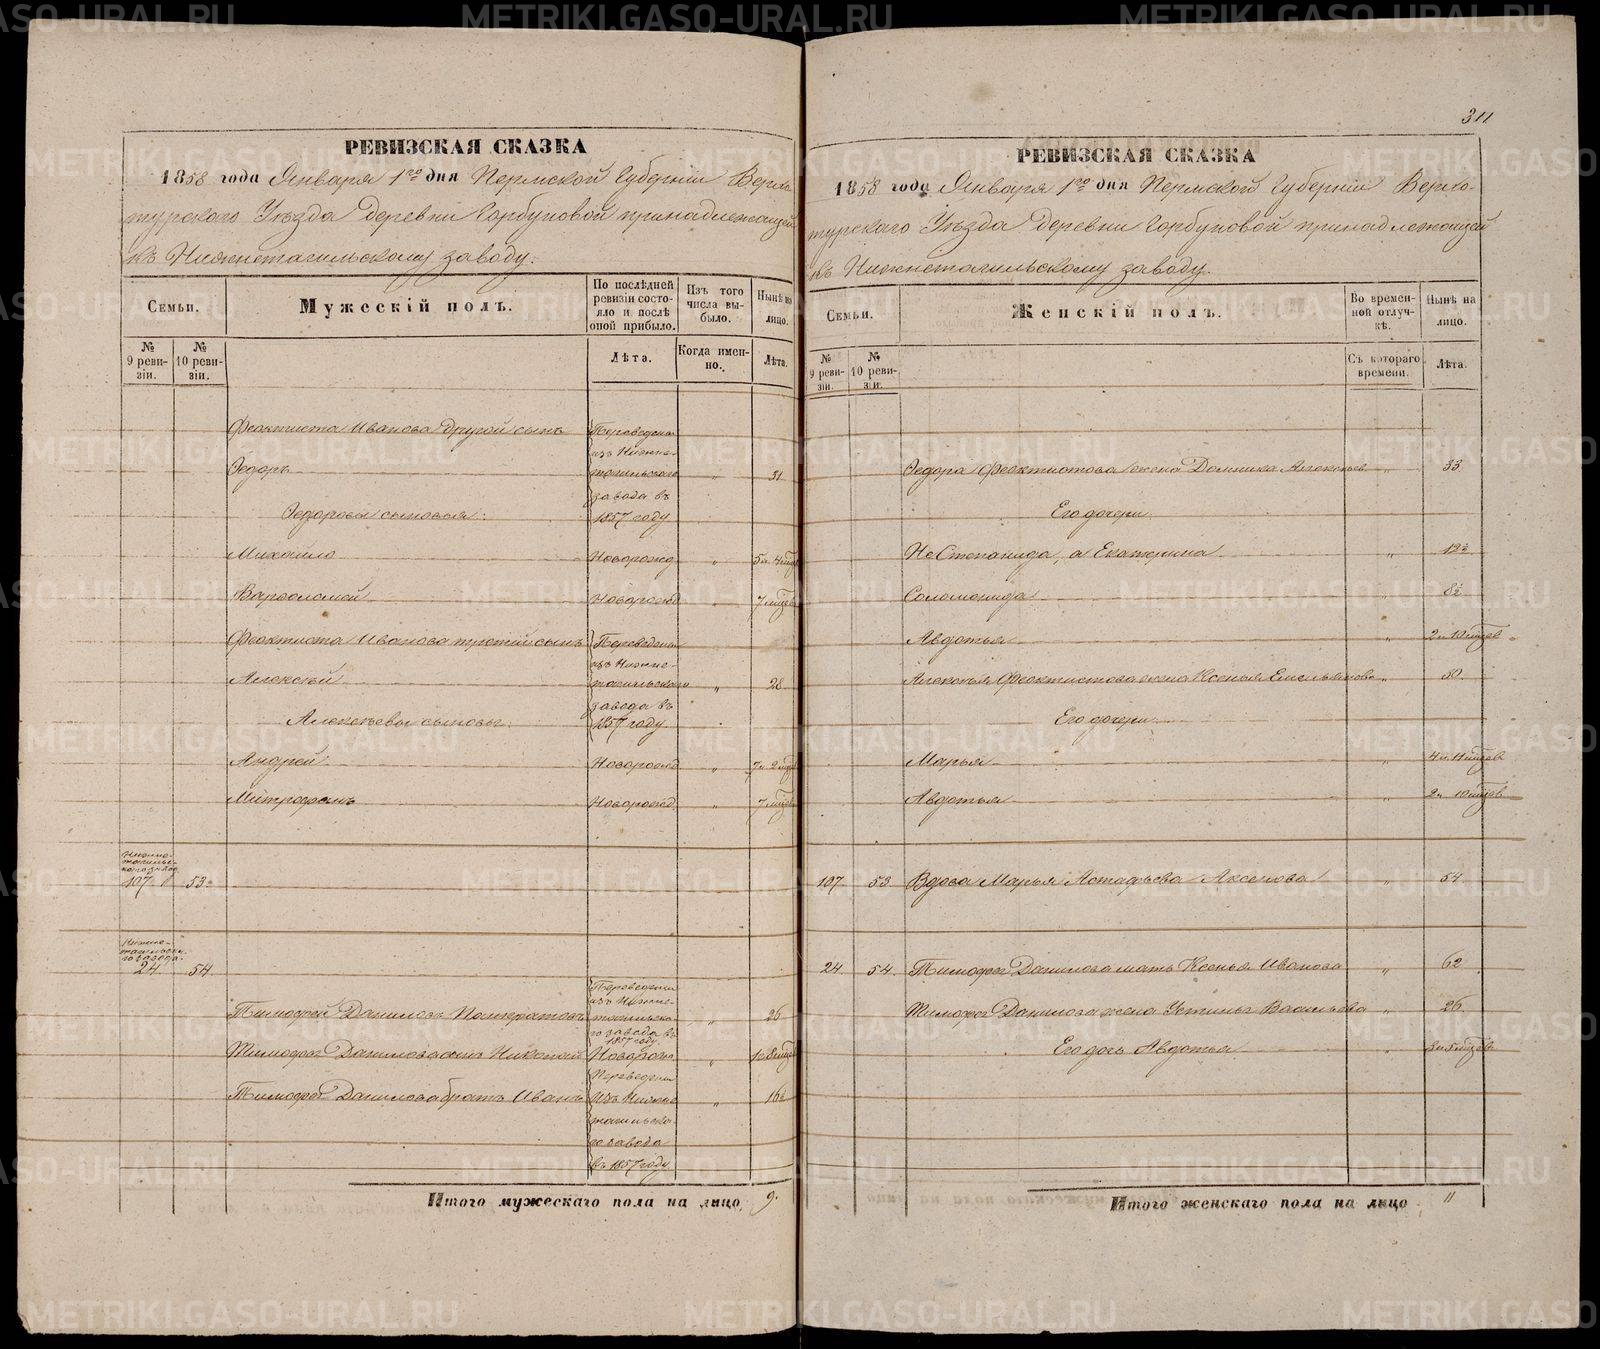 РЕВИЗСКАЯ СКАЗКА
1858 года Января 1го дня Пермской Губерніи Верхо-
турскаго Уѣзда деревни Горбуновой принадлежащей
къ Нижнетагильскому заводу.
Семьи.
Мужескій полъ.
По послѣдней ревизіи состо-яло и послѣ оной прибыло.
Изъ того числа вы-было.
Нынѣ на лицо.
№ 9 реви-зіи.
№ 10 реви-зіи.
Лѣта.
Когда имен-но.
Лѣта.
Феоктиста Иванова другой сынъ
Федоръ
Переведены
изъ Нижне-
тагильского
завода въ
1857 году
" 31
Федоровы сыновья:
Михайло Новорожд " 5 и 4 мѣсяц
Варфоломей Новорожд " 7 мѣсяц
Феоктиста Иванова третій сынъ
Алексѣй
Переведены
изъ Нижне-
тагильского
завода въ
1857 году
" 28
Алексѣевы сыновья:
Андрей Новорожд " 7 и 2 мѣсяц
Митрофанъ Новорожд " 7 мѣсяц
Нижне-
тагильс-
каго завода
107 53
Нижне-
тагильска-
го завода.
24 54
Тимофей Даниловъ Панкратовъ
Переведены
изъ Нижне-
тагильска-
го завода въ
1857 году
" 26
Тимофея Данилова сынъ Николай Новорожд " 1 и 8 мѣсяц
Тимофея Данилова братъ Иванъ
Переведены
изъ Нижне
тагильска-
го завода
въ 1857 году
" 16½
Итого мужескаго пола на лицо 9.
311
РЕВИЗСКАЯ СКАЗКА
1858 года Января 1го дня Пермской Губерніи Верхо-
турскаго Уѣзда деревни Горбуновой принадлежащей
къ Нижнетагильскому заводу.
Семьи.
Женскій полъ.
Во времен-ной отлуч-кѣ.
Нынѣ на лицо.
№ 9 реви-зіи.
№ 10 реви-зіи.
Съ котораго времени.
Лѣта.
Федора Феоктистова жена Домника Алексѣев " 33
Его дочери
Не Степанида, а Екатерина " 12½
Соломонида " 8½
Авдотья " 2 и 10 мѣсяцев
Алексѣя Феоктистова жена Ксенья Емельянова " 30
Его дочери
Марья " 4 и 11 мѣсяцев
Авдотья " 2 и 10 мѣсяцев
107 53 Вдова Марья Астафьева Аксенова " 54
24 54. Тимофея Данилова мать Ксенья Иванова " 62
Тимофея Данилова жена Устинья Васильева " 26
Его дочь Авдотья " 3 и 5 мѣсяцев
Итого женскаго пола на лицо 11
METRIKI.GASO-URAL.RU